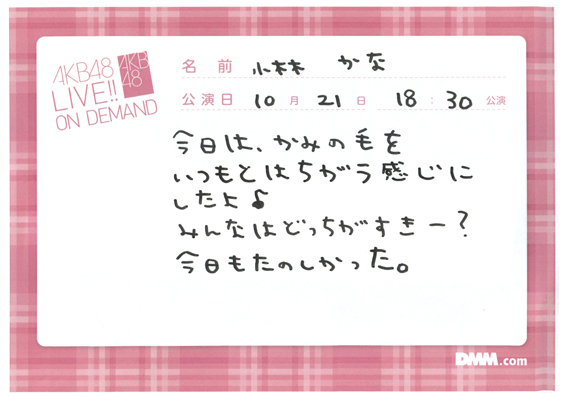 AKB48
LIVE!!
ON DEMAND
AKB
48
名前 小林 かな
公演日 10月21日 18:30公演
今日は、かみの毛を
いつもとはちがう感じに
したよ♪
みんなはどっちがすきー?
今日もたのしかった。
DMM.com